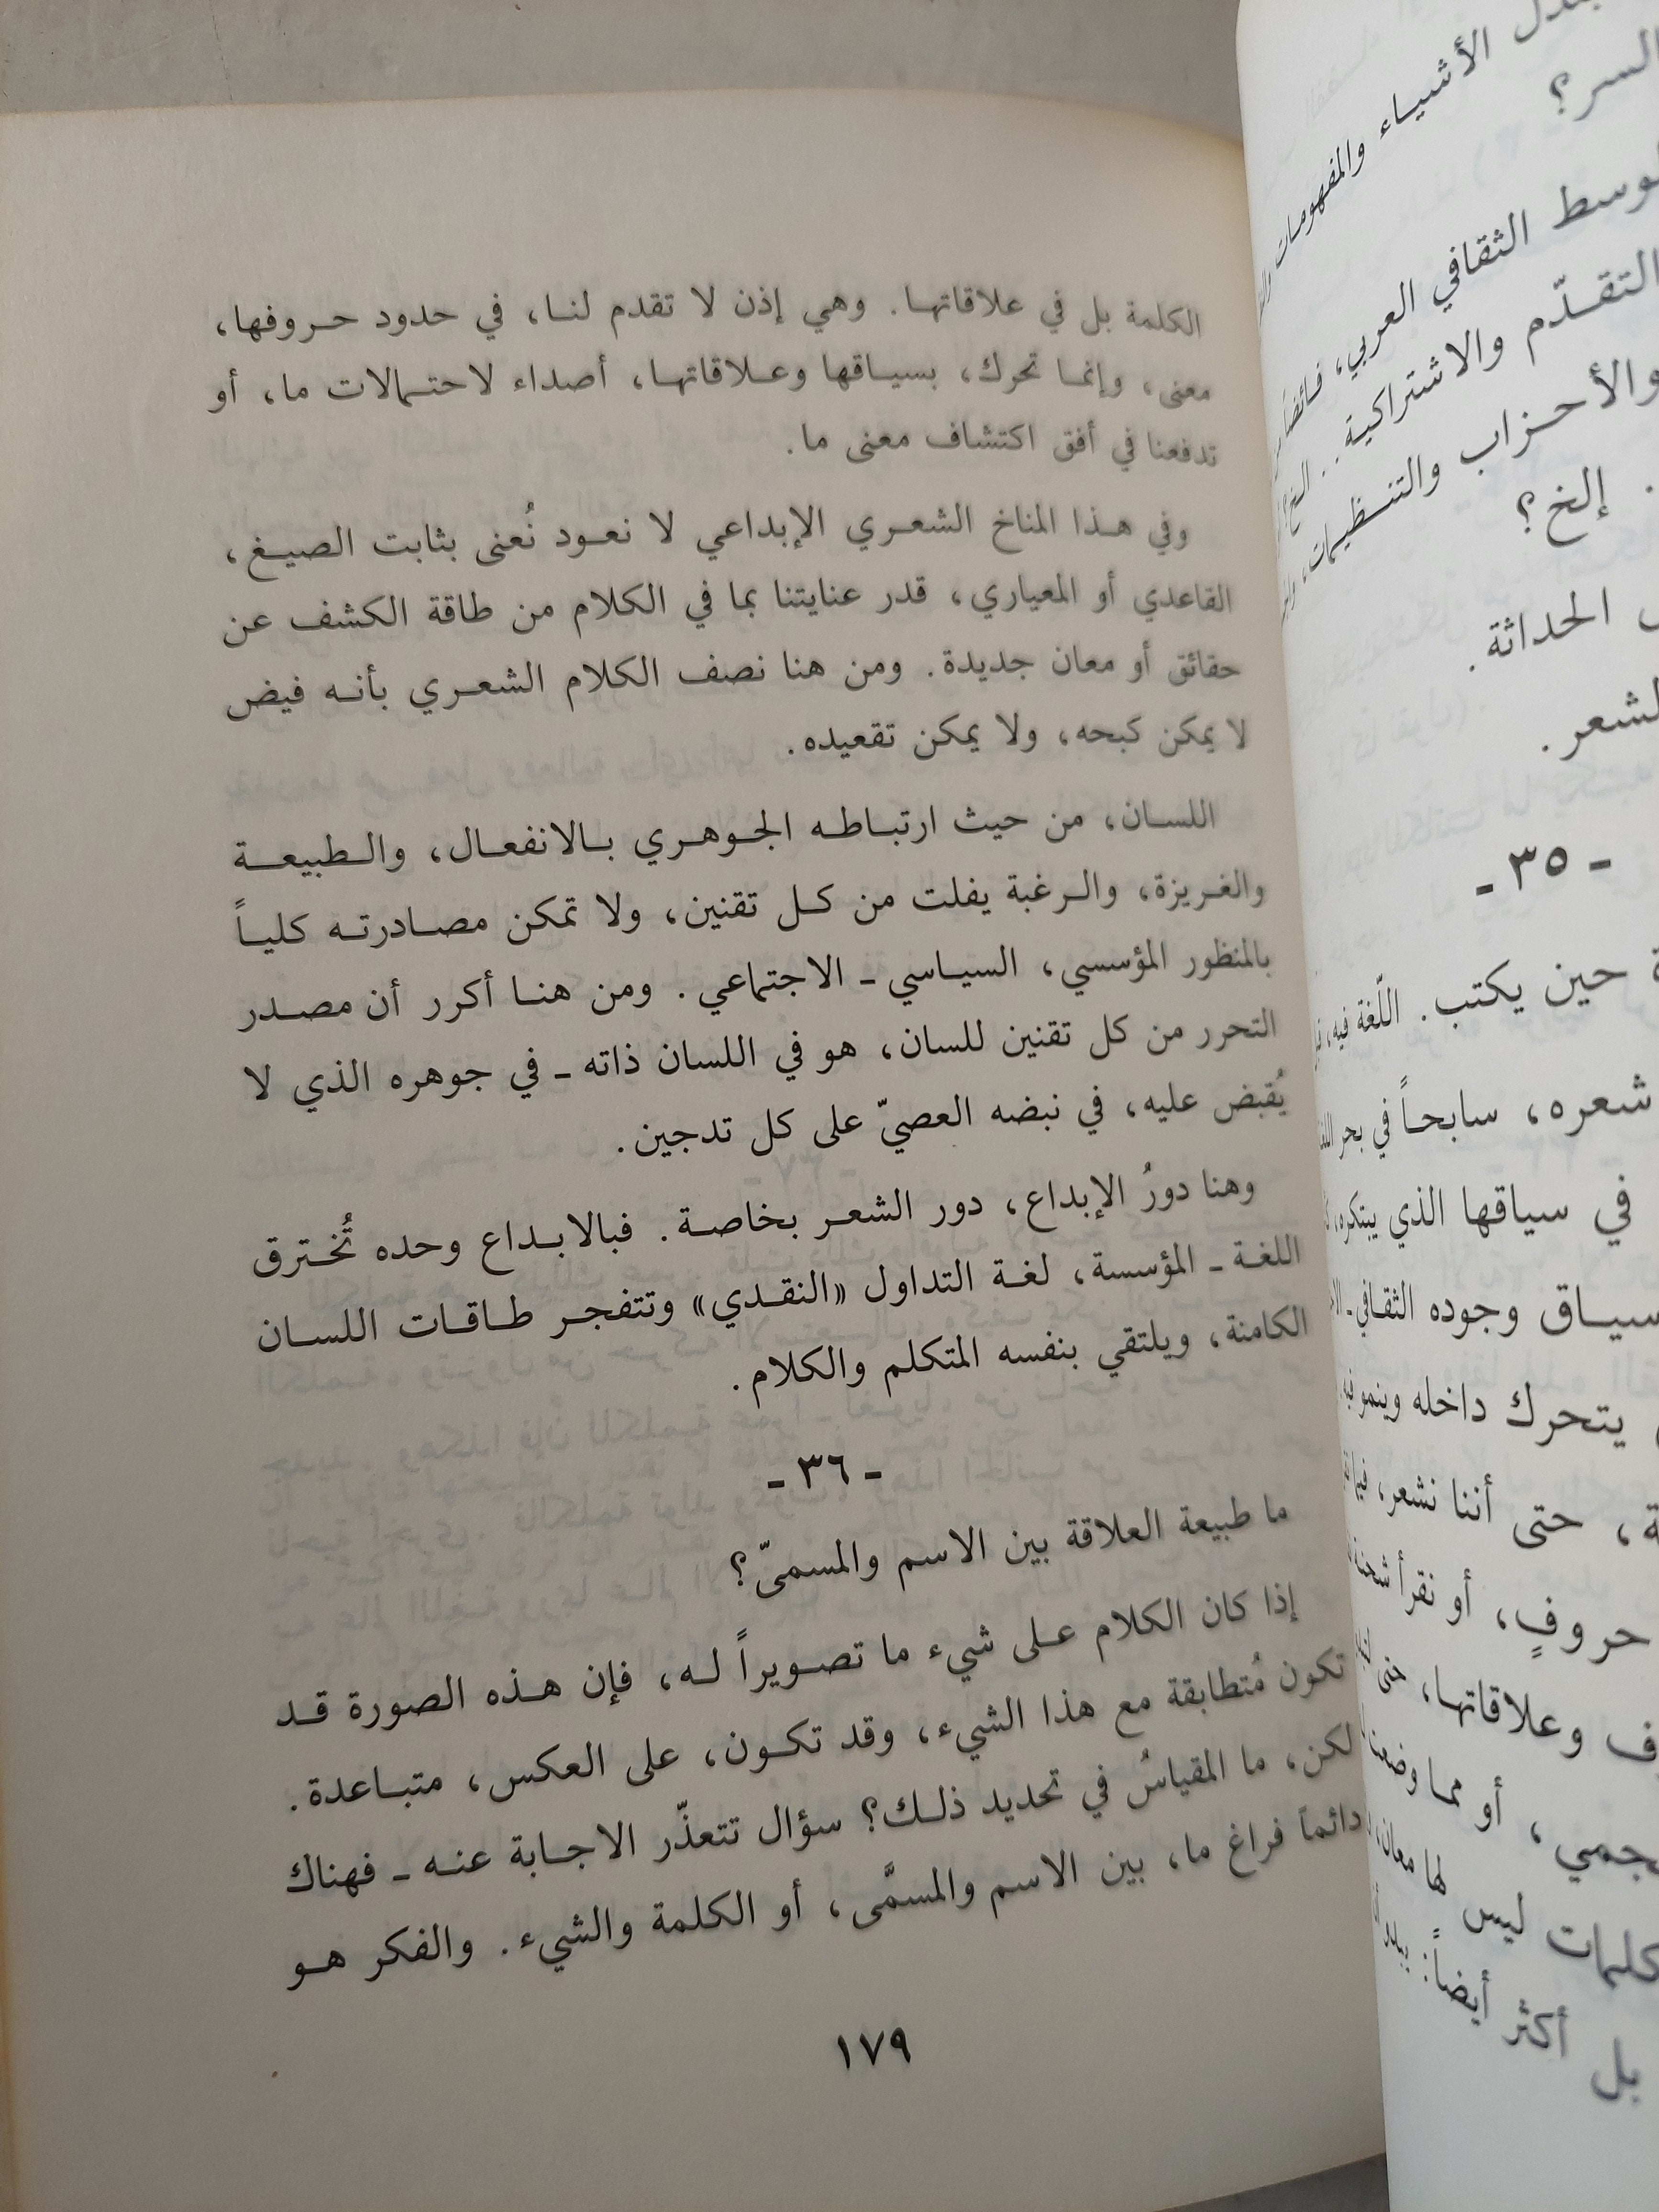 الكلمة بل في علاقاتها. وهي إذن لا تقدم لنا، في حدود حروفها،
معنى، وإنما تحرك، بسياقها وعلاقاتها، أصداء لاحتمالات ما، أو
تدفعنا في أفق اكتشاف معنى ما.
وفي هذا المناخ الشعري الإبداعي لا نعود نُعنى بثابت الصيغ،
القاعدي أو المعياري، قدر عنايتنا بما في الكلام من طاقة الكشف عن
حقائق أو معان جديدة. ومن هنا نصف الكلام الشعري بأنه فيض
لا يمكن كبحه، ولا يمكن تقعيده.
اللسان، من حيث ارتباطه الجوهري بالانفعال، والطبيعة
والغريزة، والرغبة يفلت من كل تقنين، ولا تمكن مصادرته كلياً
بالمنظور المؤسسي، السياسي ـ الاجتماعي. ومن هنا أكرر أن مصدر
التحرر من كل تقنين للسان، هو في اللسان ذاته ـ في جوهره الذي لا
يُقبض عليه، في نبضه العصيّ على كل تدجين.
وهنا دورُ الإبداع، دور الشعر بخاصة. فبالابداع وحده تُخترق
اللغة ـ المؤسسة، لغة التداول «النقدي» وتتفجر طاقات اللسان
الكامنة، ويلتقي بنفسه المتكلم والكلام.
ـ ٣٦ ـ
ما طبيعة العلاقة بين الاسم والمسمىّ؟
إذا كان الكلام على شيء ما تصويراً له، فإن هذه الصورة قد
تكون مُتطابقة مع هذا الشيء، وقد تكون، على العكس، متباعدة.
لكن، ما المقياسُ في تحديد ذلك؟ سؤال تتعذّر الاجابة عنه ـ فهناك
دائماً فراغ ما، بين الاسم والمسمَّى، أو الكلمة والشيء. والفكر هو
١٧٩
الأشياء والمفهومات
السر؟
الثقافي العربي،
التقدّم والاشتراكية..
والأحزاب والتنظيمات،
. إلخ؟
الحداثة.
ـ ٣٥ ـ
حين يكتب. اللّغة فيه،
شعره، سابحاً في بحر
في سياقها الذي يبتكره،
وجوده الثقافي ـ
يتحرك داخله وينمو
، حتى أننا نشعر،
حروفٍ، أو نقرأ
وعلاقاتها،
، أو مما
ليس لها معان،
بل أكثر أيضاً: